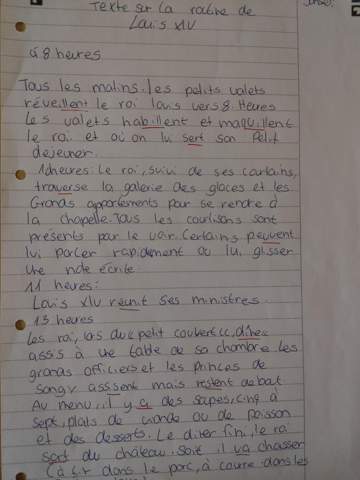 Texte sur la routine de
Louis XIV
à 8 heures
Tous les matins, les petits valets
réveillent le roi Louis vers 8. Heures
Les valets habillent et maquillent
le roi et où on lu sert son Petit
dejeuner.
heures: Le roi, suivi de ses
traverse la galerie des glaces et les
Grands appartements par se rendre à
la chapelle. Tous les courisons sont
présents par le voir. Certains peuvent
lui parler rapidement ou lui glisser
Une note écrite
11 heures:
Louis XIV réunit ses ministres.
13 heures
Les roi, lors du petit couvert
assis à une table de sa chambre. Les
grands officiers et les princes de
sang assisent mais restent debat
Au menu, il y a des sapes, cinq à
sept, plats de viande ou de poisson
et des desserts. Le diner fini, le roi
sort du château. soit, il va chasser
dans le parc, à courre dans les